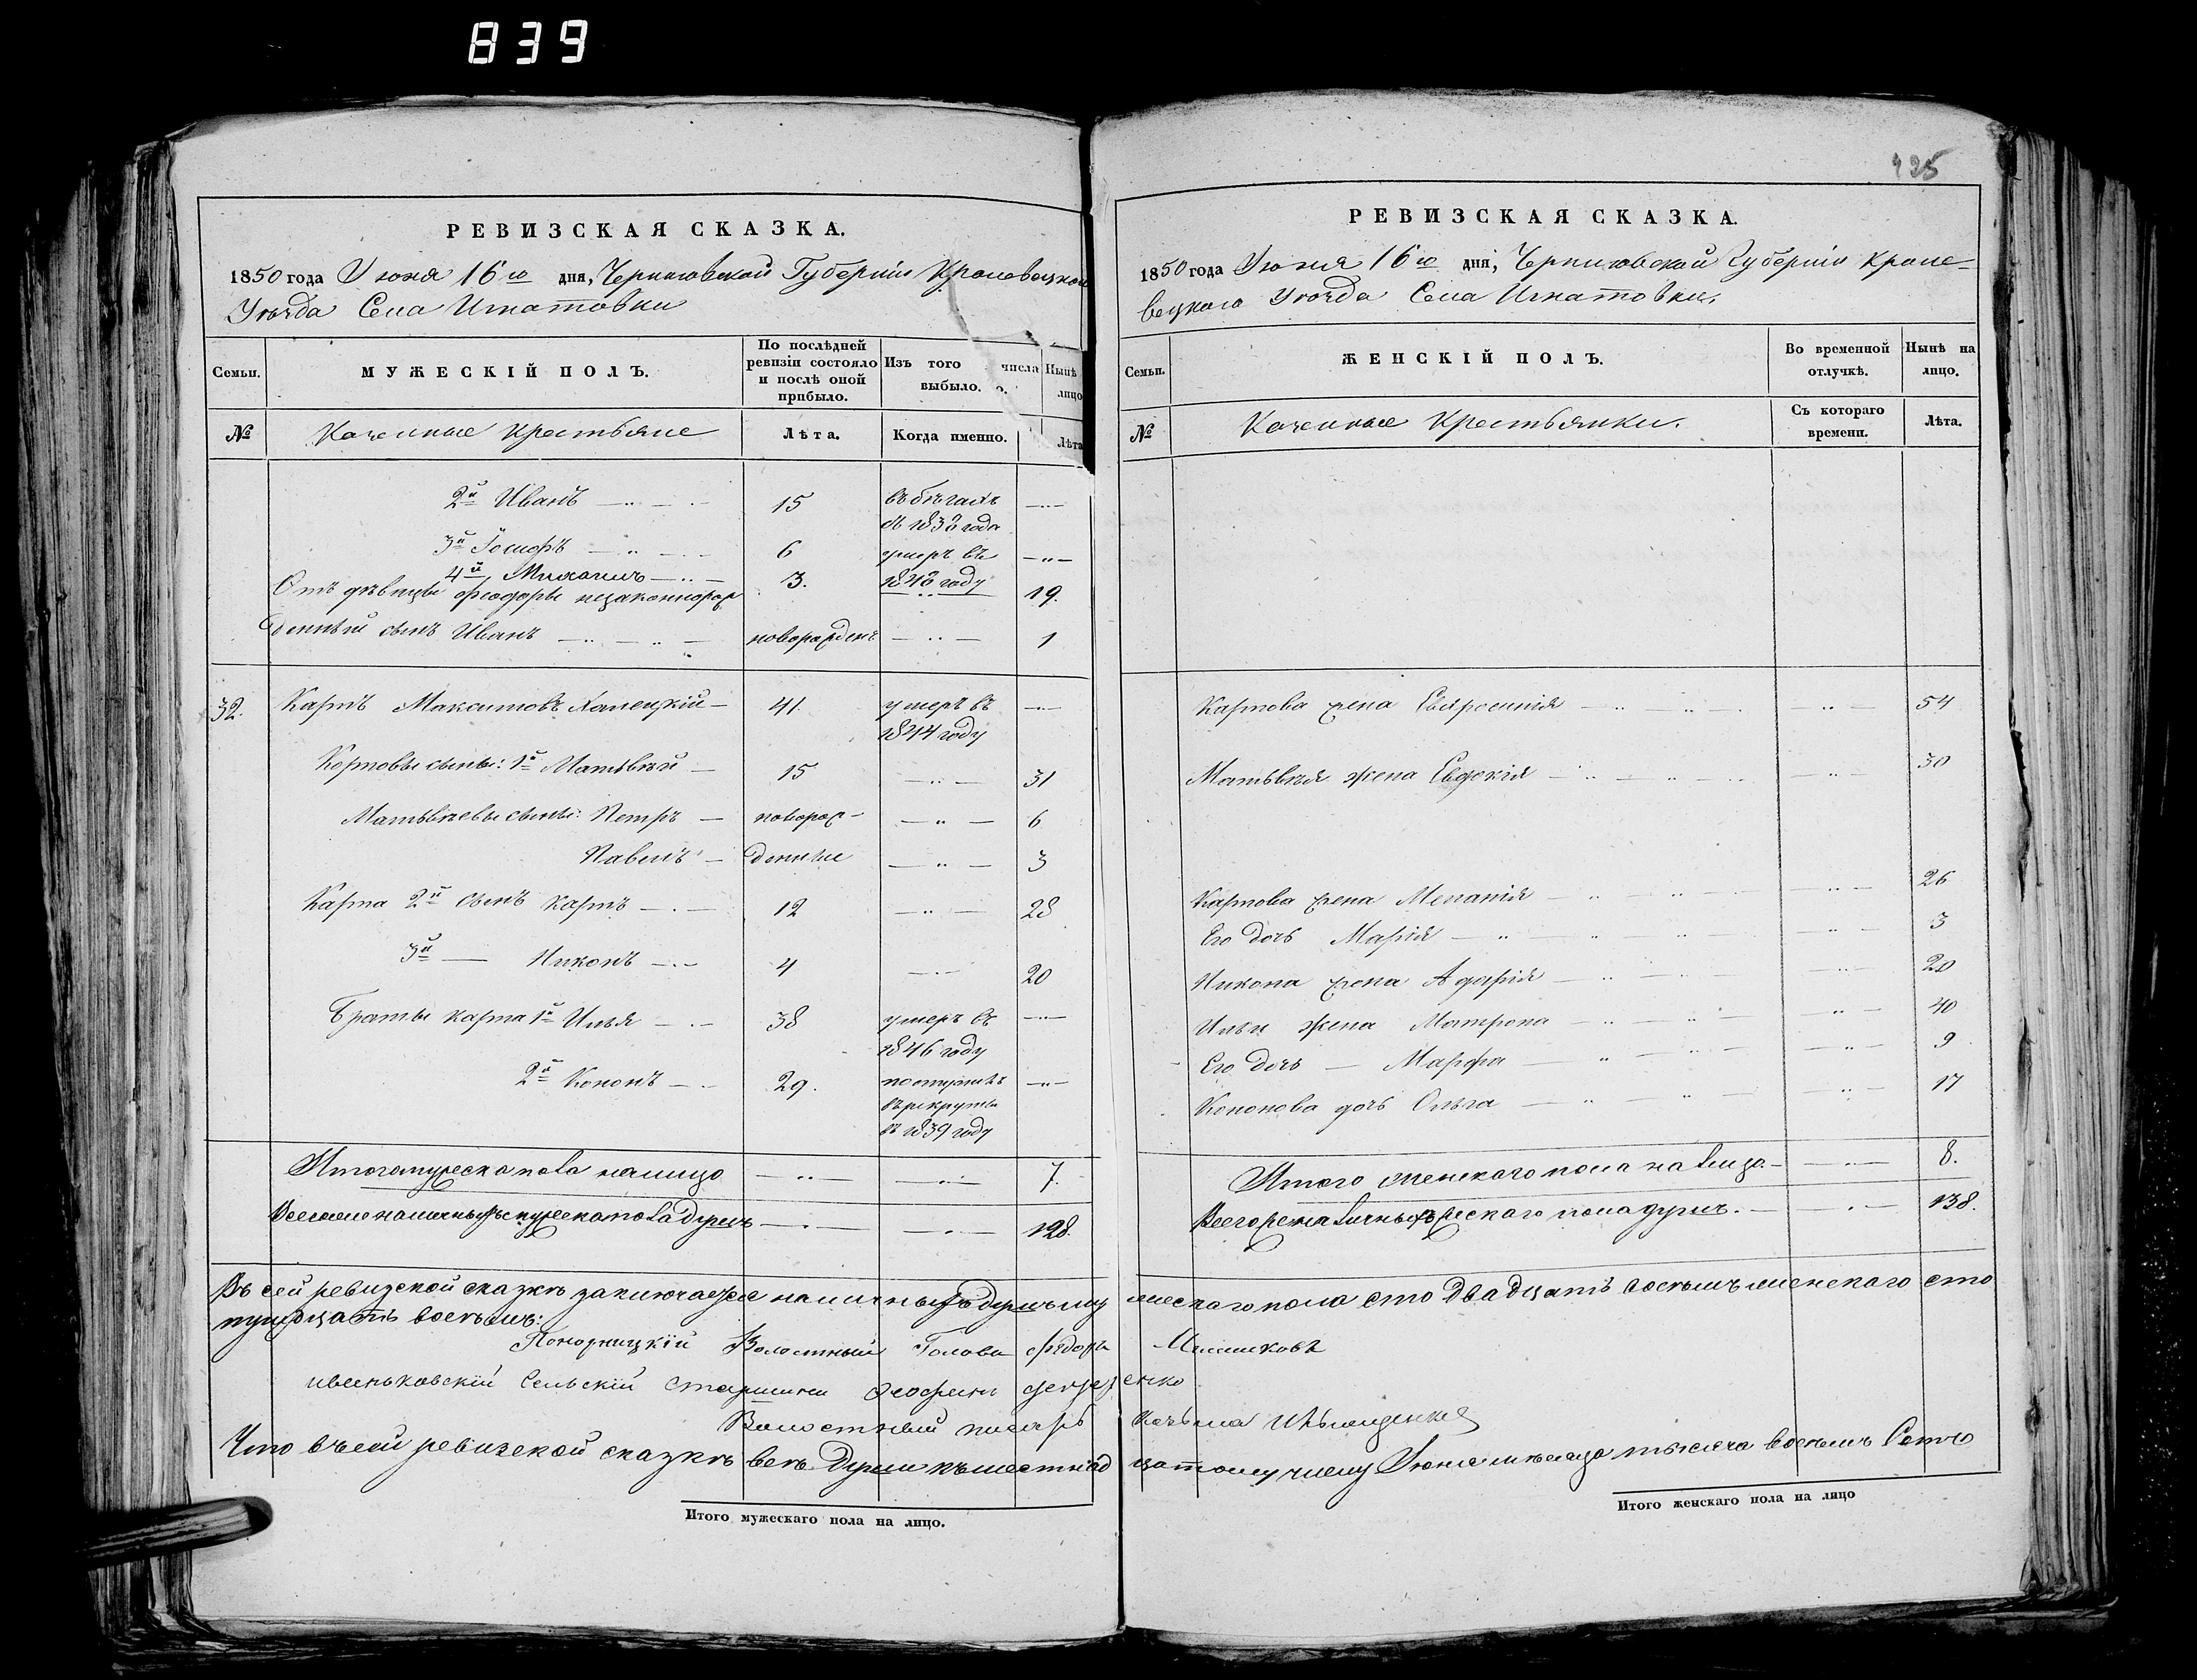 839
РЕВИЗСКАЯ СКАЗКА.
1850 года Июня 16го дня, Черниговской Губерніи Кролевецкого
Уѣзда Села Игнатовки
Семьи.
МУЖЕСКІЙ ПОЛЪ.
По послѣдней ревизіи состояло и послѣ оной прибыло.
Изъ того числа выбыло.
Нынѣ лицо
№
Казенные Крестьяне
Лѣта.
Когда именно.
Лѣта
2й Иванъ 15 въ бѣгахъ
съ 1838 года
3й Іосифъ 6 умеръ въ
1848 году
4й Михаилъ 3. 19.
Отъ дѣвицы Феодоры незаконнорож
денный сынъ Иванъ новорожденъ 1
32. Карпъ Максимовъ 41. умеръ въ
1844 году
Карповы сыны: 1й Матвѣй 15 31
Матвѣевы сыны: Петръ новорож- 6
Павелъ денные 3
Карпа 2й сынъ Карпъ 12 28
3й Никонъ 4 20
Браты Карпа 1й Илья 38 умеръ въ
1846 году
2й Кононъ 29. поступилъ
въ рекруты
въ 1839 году
Итого мужеска пола на лицо 7.
Всего же наличныхъ мужеска пола душъ 128.
425
РЕВИЗСКАЯ СКАЗКА.
1850 года Июня 16го дня, Черниговской Губерніи Кроле-
вецкого Уѣзда Села Игнатовки.
Семьи.
ЖЕНСКІЙ ПОЛЪ.
Во временной отлучкѣ.
Нынѣ на лицо.
№
Казенные Крестьянки.
Съ котораго времени.
Лѣта.
Карпова жена Евфросинія 54
Матвѣя жена Евдокія 30
Карпова жена Меланія 26
Его дочь Марія 3
Никона жена 20
Ильи жена Матрона 40
Его дочь Марфа 9
Кононова дочь Ольга 17
Итого женскаго пола на лицо 8.
Всего же наличныхъ женскаго пола душъ. 138.
Въ сей ревизской сказкѣ заключается наличныхъ душъ му жескаго пола сто двадцать восемь женскаго сто
тридцать восемь:
Понорницкій Волостный Голова Федоръ
Сельскій старшина
Волостный писарь
Что въ сей ревизской сказкѣ всѣ души къ шестнад цатому числу Июня мѣсяца тысяча восемь сотъ
Итого мужескаго пола на лицо.
Итого женскаго пола на лицо